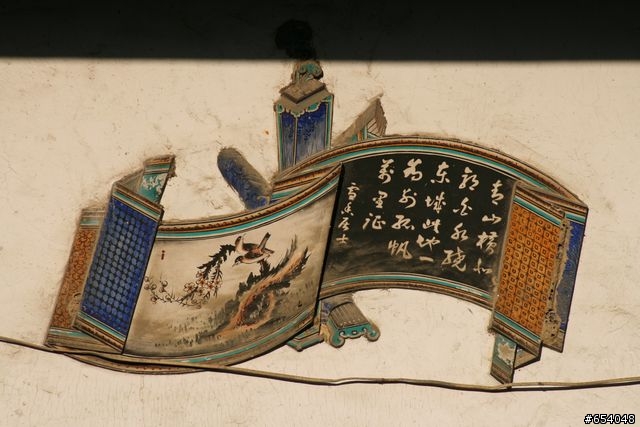 青山橫北
郭白水繞
東城此地一
為別孤帆
萬里征
居士
#654048